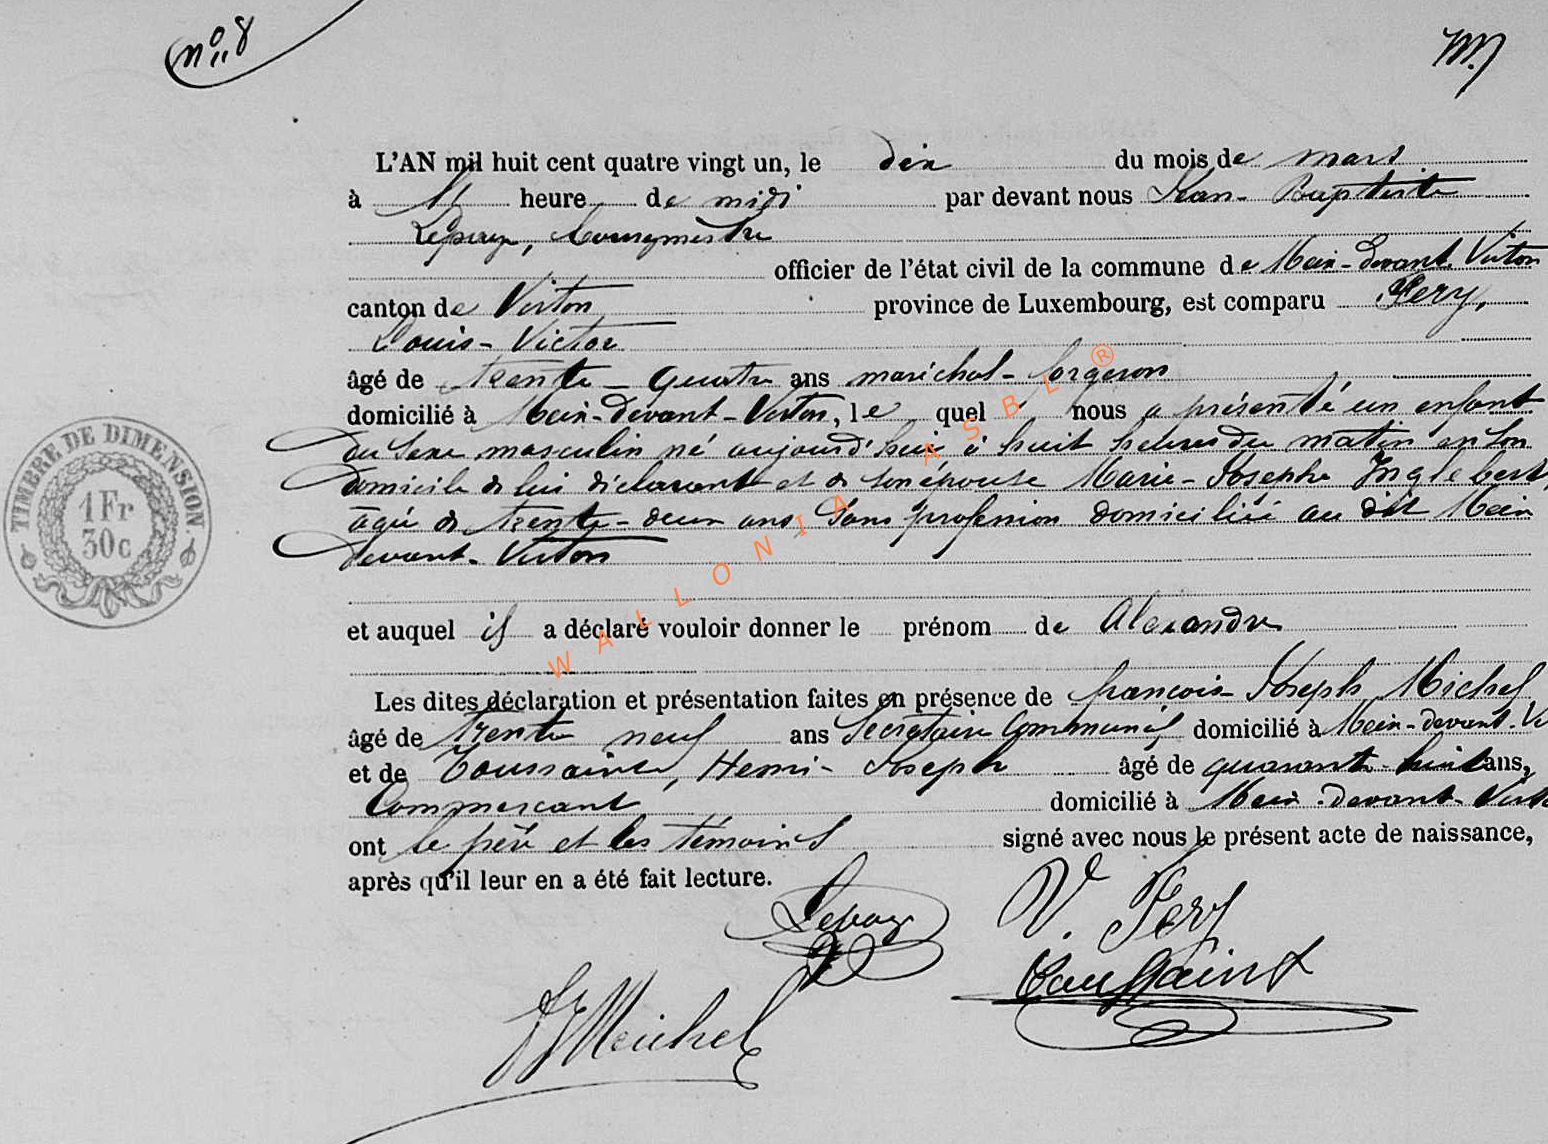 n° 8
M.
L'AN mil huit cent quatre vingt un, le dix du mois de mars
à 11 heure de midi par devant nous Jean-Baptiste
Lepage, bourgmestre
officier de l'état civil de la commune de Meix-devant-Virton
canton de Virton province de Luxembourg, est comparu Pery,
Louis-Victor
âgé de trente-quatre ans maréchal-forgeron
domicilié à Meix-devant-Virton, le quel nous a présenté un enfant
du sexe masculin né aujourd'hui à huit heures du matin en son
domicile de lui déclarant et de son épouse Marie-Josephe Inglebert,
âgée de trente-deux ans sans profession domiciliée au dit Meix
devant-Virton
et auquel il a déclaré vouloir donner le prénom de Alexandre
Les dites déclaration et présentation faites en présence de françois-Joseph Michel
âgé de trente neuf ans Secrétaire Communal domicilié à Meix-devant-V
et de Toussaint, Henri-Joseph âgé de quarante-huit ans,
Commerçant domicilié à Meix-devant-Virto
ont le père et les témoins signé avec nous le présent acte de naissance,
après qu'il leur en a été fait lecture.
Lepage V. Pery
Toussaint
FJ Michel
TIMBRE DE DIMENSION
1 Fr
30c
WALLONIA ASBL ®